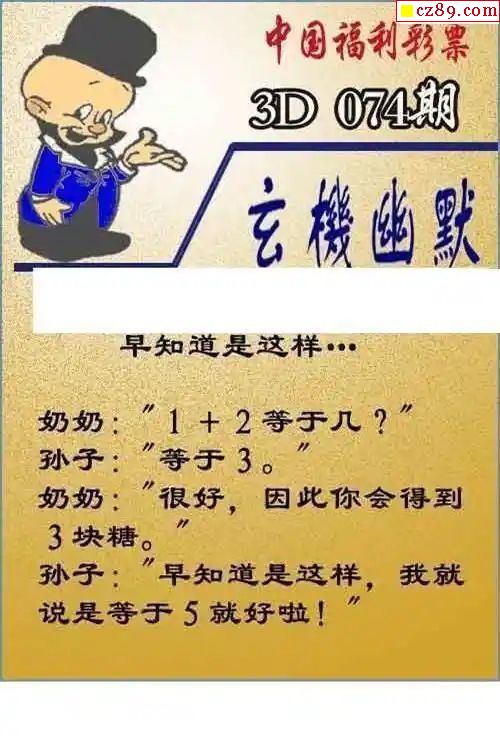 cz89.com
中国福利彩票
3D 074期
玄機幽默
早知道是这样…
奶奶:"1+2等于几?"
孙子:"等于3。"
奶奶:"很好，因此你会得到
3块糖。"
孙子:"早知道是这样，我就
说是等于5就好啦!"